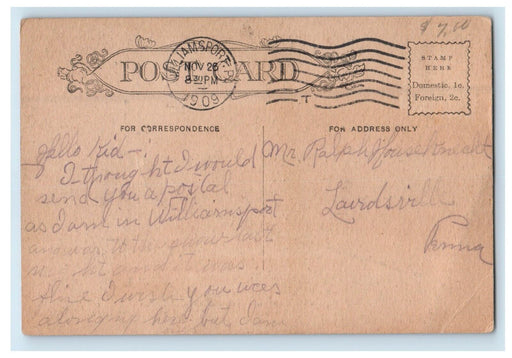 $ 7.00
POST CARD
WILLIAMSPORT, PA.
NOV 23
830PM
1909
STAMP
HERE
Domestic, 1c.
Foreign, 2c.
FOR CORRESPONDENCE
FOR ADDRESS ONLY
Hello Kid-!
I thought I would
send you a postal
as I am in Williamsport
and was to the show last
night and it was
fine I wish you were
along up here but I am
Mr. Ralph Houseknecht
Lairdsville
Penna